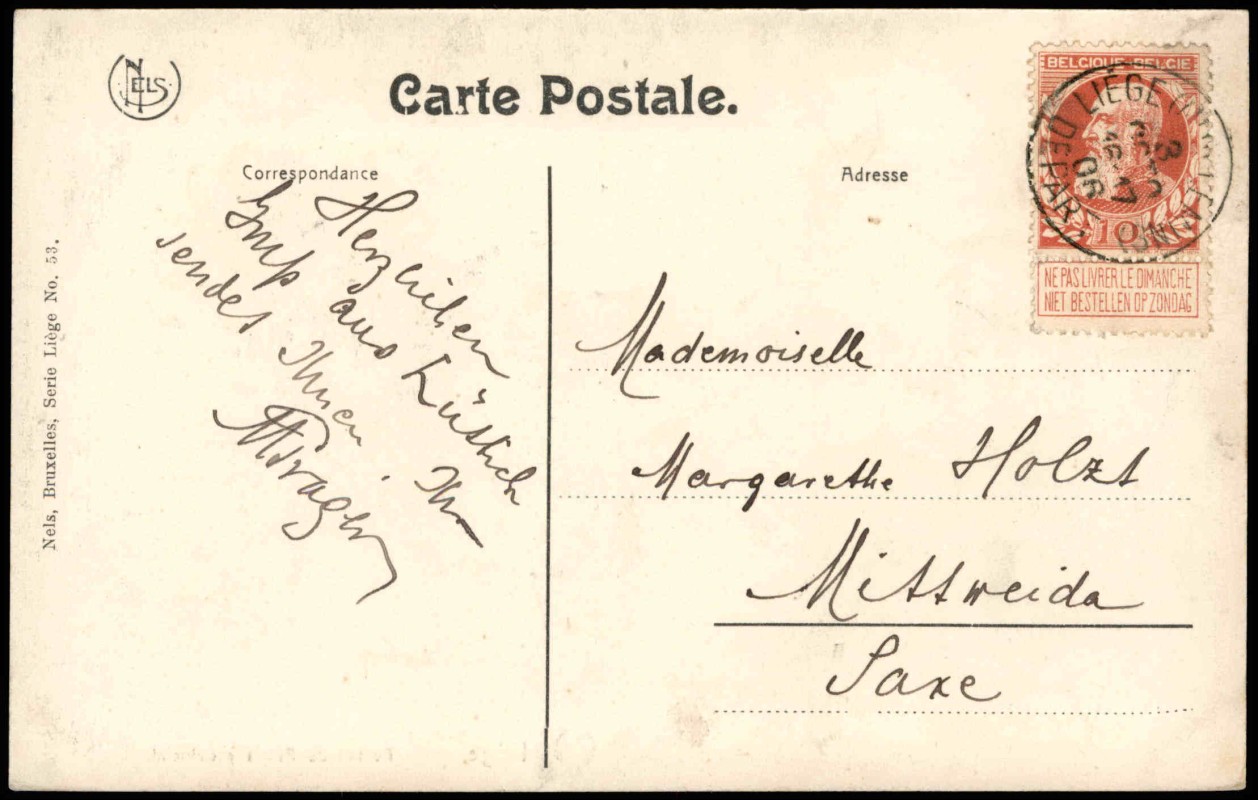 NELS
Carte Postale.
Correspondance
Adresse
Herzlichen
Gruß aus Lüttich
sendet Ihnen Ihr
Nels, Bruxelles, Serie Liège No. 53.
BELGIQUE-BELGIE
10
NE PAS LIVRER LE DIMANCHE
NIET BESTELLEN OP ZONDAG
LIÈGE (GUILLEMINS)
DEPART
Mademoiselle
Margarethe Holzt
Mittweida
Saxe